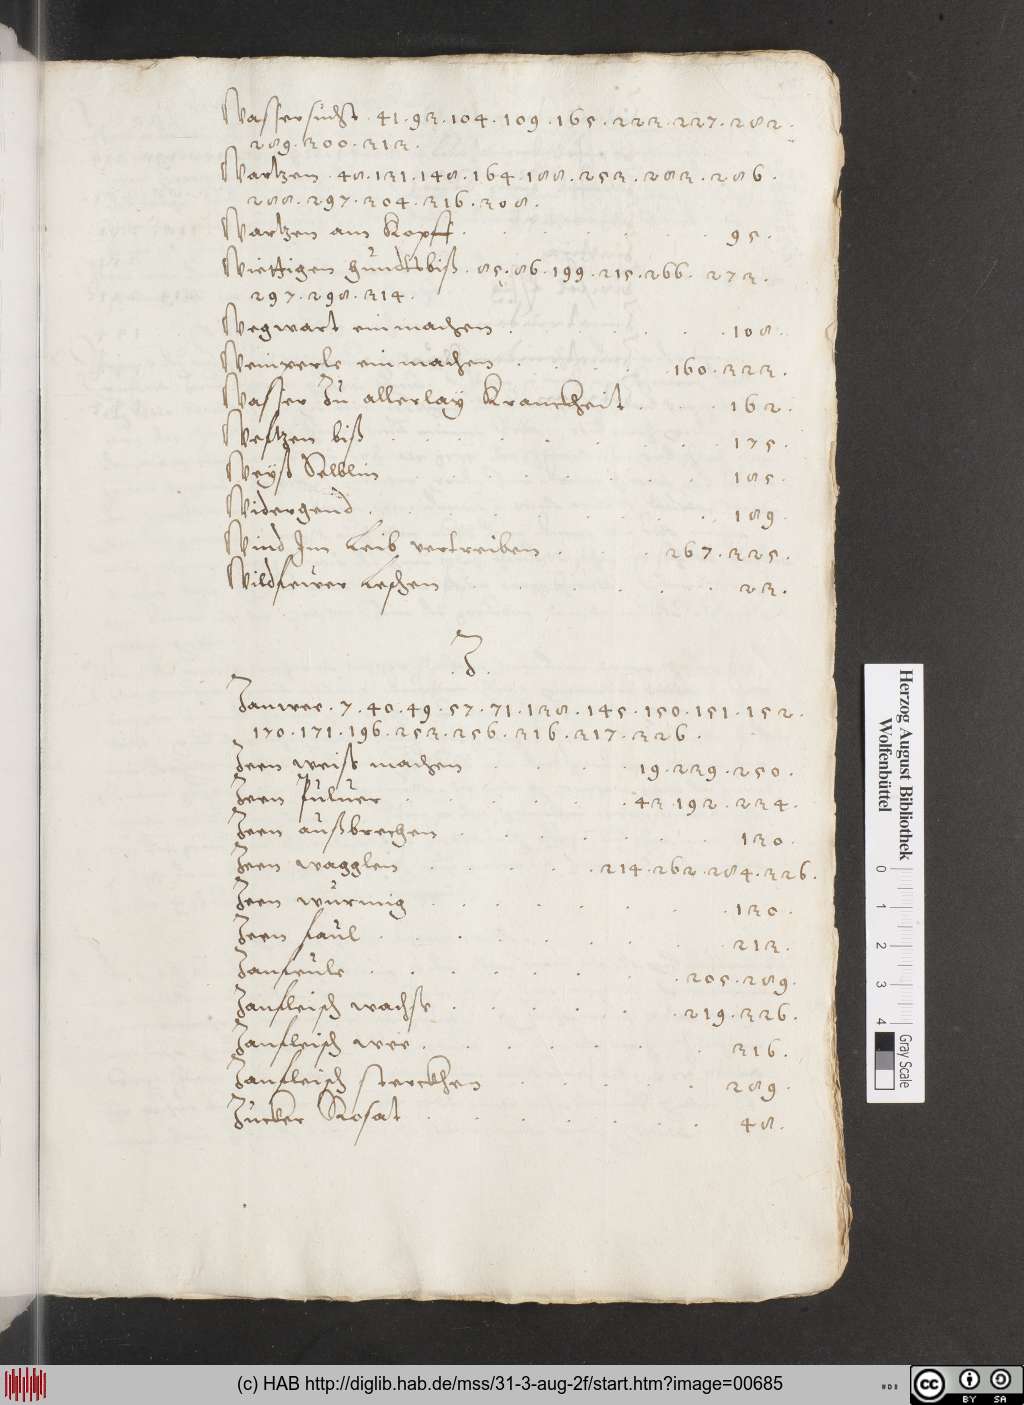 Wassersucht . 41 . 93 . 104 . 109 . 165 . 223 . 227 . 282 .
289 . 300 . 313 .
Wartzen . 48 . 131 . 148 . 164 . 188 . 253 . 283 . 286 .
288 . 297 . 304 . 316 . 308 .
Wartzen am Kopff . 95 .
Wiettigen hundtsbiß . 85 . 86 . 199 . 215 . 266 . 273 .
297 . 298 . 314 .
Wegwart einmachen . 108 .
Weinperle einmachen . 160 . 323 .
Wasser Zu allerlay Kranckheit . 162 .
Weſtzen biß . 175 .
Weyß Selblin . 185 .
Widergend . 189 .
Wind Im Leib vertreiben . 267 . 325 .
Wildfewer Leschen . 23 .
. Z .
Zanwee . 7 . 40 . 49 . 57 . 71 . 138 . 145 . 150 . 151 . 152 .
170 . 171 . 196 . 253 . 256 . 316 . 317 . 326 .
Zeen weiß machen . 19 . 239 . 250 .
Zeen Puluer . 43 . 192 . 234 .
Zeen außbrechen . 130 .
Zeen wagglen . 214 . 262 . 284 . 326 .
Zeen würmig . 130 .
Zeen faul . 213 .
Zanfeule . 205 . 289 .
Zanfleisch wachse . 219 . 326 .
Zanfleisch wee . 316 .
Zanfleisch sterckhen . 289 .
Zucker Rosat . 48 .
Herzog August Bibliothek
Wolfenbüttel
0 1 2 3 4
Gray Scale
(c) HAB http://diglib.hab.de/mss/31-3-aug-2f/start.htm?image=00685
cc BY SA